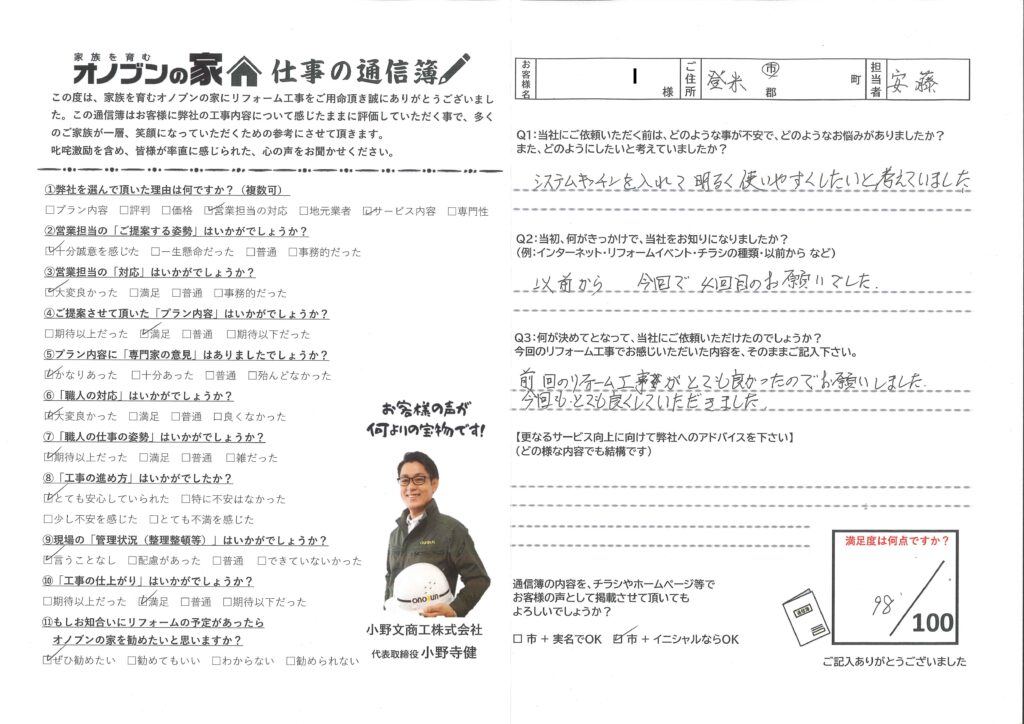 家族を育む
オノブンの家 仕事の通信簿
この度は、家族を育むオノブンの家にリフォーム工事をご用命頂き誠にありがとうございまし
た。この通信簿はお客様に弊社の工事内容について感じたままに評価していただく事で、多く
のご家族が一層、笑顔になっていただくための参考にさせて頂きます。
叱咤激励を含め、皆様が率直に感じられた、心の声をお聞かせください。
①弊社を選んで頂いた理由は何ですか？（複数可）
□プラン内容 □評判 □価格 ☑営業担当の対応 □地元業者 ☑サービス内容 □専門性
②営業担当の「ご提案する姿勢」はいかがでしょうか？
☑十分誠意を感じた □一生懸命だった □普通 □事務的だった
③営業担当の「対応」はいかがでしょうか？
☑大変良かった □満足 □普通 □事務的だった
④ご提案させて頂いた「プラン内容」はいかがでしょうか？
□期待以上だった ☑満足 □普通 □期待以下だった
⑤プラン内容に「専門家の意見」はありましたでしょうか？
☑かなりあった □十分あった □普通 □殆んどなかった
⑥「職人の対応」はいかがでしょうか？
☑大変良かった □満足 □普通 □良くなかった
⑦「職人の仕事の姿勢」はいかがでしょうか？
☑期待以上だった □満足 □普通 □雑だった
⑧「工事の進め方」はいかがでしたか？
☑とても安心していられた □特に不安はなかった
□少し不安を感じた □とても不満を感じた
⑨現場の「管理状況（整理整頓等）」はいかがでしょうか？
☑言うことなし □配慮があった □普通 □できていないかった
⑩「工事の仕上がり」はいかがでしょうか？
□期待以上だった ☑満足 □普通 □期待以下だった
⑪もしお知合いにリフォームの予定があったら
オノブンの家を勧めたいと思いますか？
☑ぜひ勧めたい □勧めてもいい □わからない □勧められない
お客様の声が
何よりの宝物です！
onobun
小野文商工株式会社
代表取締役 小野寺健
お客様名 I 様 ご住所 登米 市 郡 町 担当者 安藤
Q1：当社にご依頼いただく前は、どのような事が不安で、どのようなお悩みがありましたか？
また、どのようにしたいと考えていましたか？
システムキッチンを入れて明るく使いやすくしたいと考えていました
Q2：当初、何がきっかけで、当社をお知りになりましたか？
（例：インターネット・リフォームイベント・チラシの種類・以前から など）
以前から 今回で4回目のお願いでした。
Q3：何が決めてとなって、当社にご依頼いただけたのでしょうか？
今回のリフォーム工事でお感じいただいた内容を、そのままご記入下さい。
前回のリフォーム工事がとても良かったのでお願いしました。
今回も、とても良くしていただきました。
【更なるサービス向上に向けて弊社へのアドバイスを下さい】
（どの様な内容でも結構です）
通信簿の内容を、チラシやホームページ等で
お客様の声として掲載させて頂いても
よろしいでしょうか？
□ 市 + 実名でOK ☑ 市 + イニシャルならOK
通信簿
満足度は何点ですか？
98
100
ご記入ありがとうございました